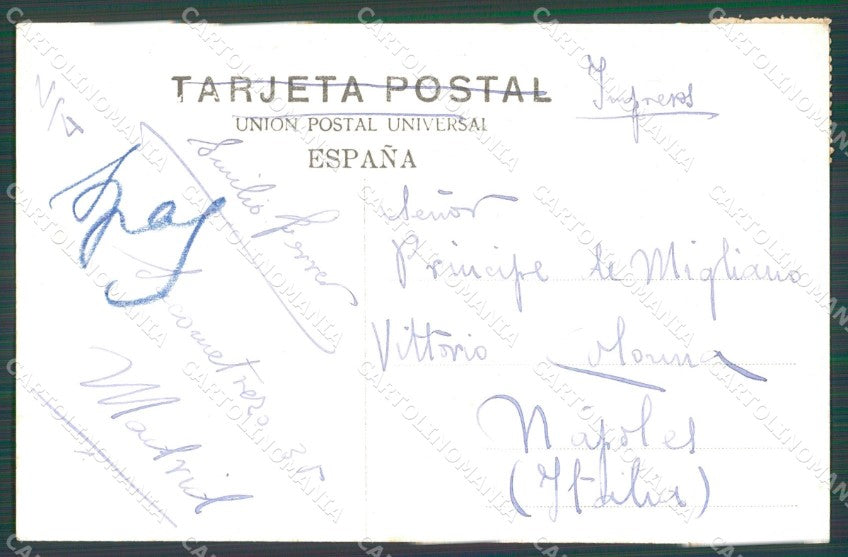 TARJETA POSTAL
UNION POSTAL UNIVERSAL
ESPAÑA
Impresos
Emilio Ferrer
Jacometrezo 35
Madrid
Señor
Principe de Migliano
Vittorio
Nápoles
(Italia)
CARTOLINOMANIA